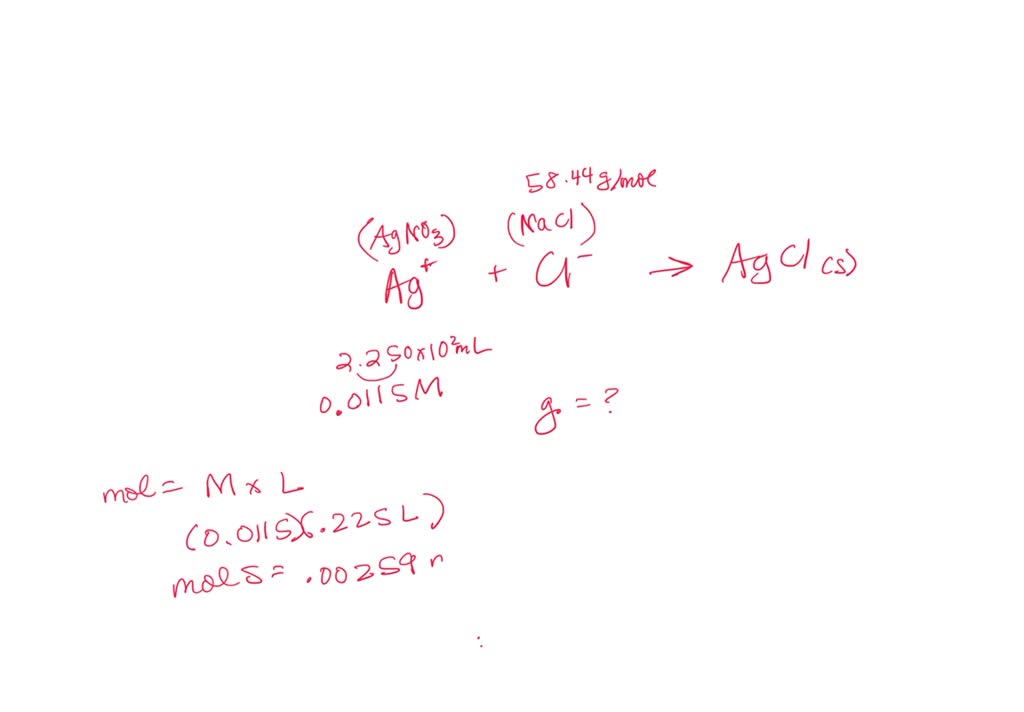 58.44 g/mol
(AgNO₃) (NaCl)
Ag⁺ + Cl⁻ → AgCl (s)
2.250×10²mL
0.0115M
g = ?
mol = M × L
(0.0115)(.225L)
mols = .00259